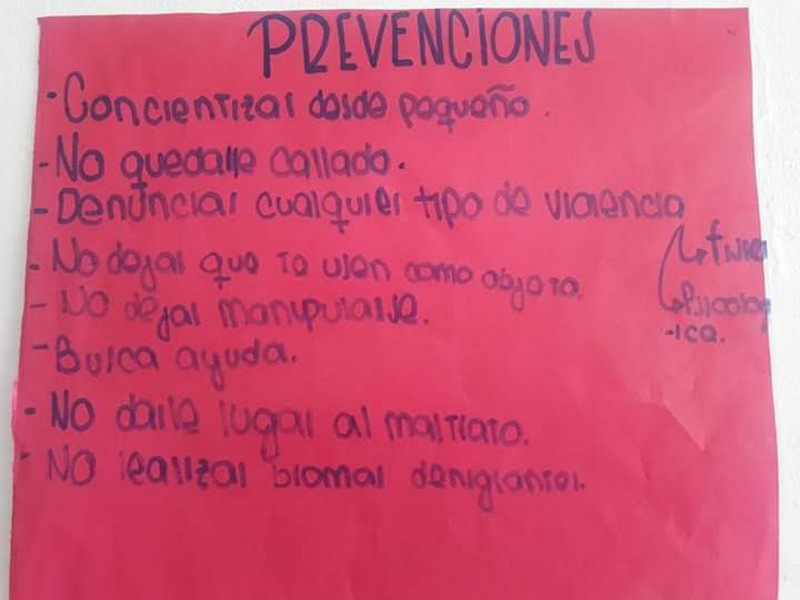 PREVENCIONES
- Concientizar desde pequeño.
- No quedarse callado.
- Denunciar cualquier tipo de violencia
↳ física
↳ Psicolog
-ica.
- No dejar que te usen como objeto.
- No dejar manipularse.
- Busca ayuda.
- No darle lugar al maltrato.
- No realizar bromas denigrantes.